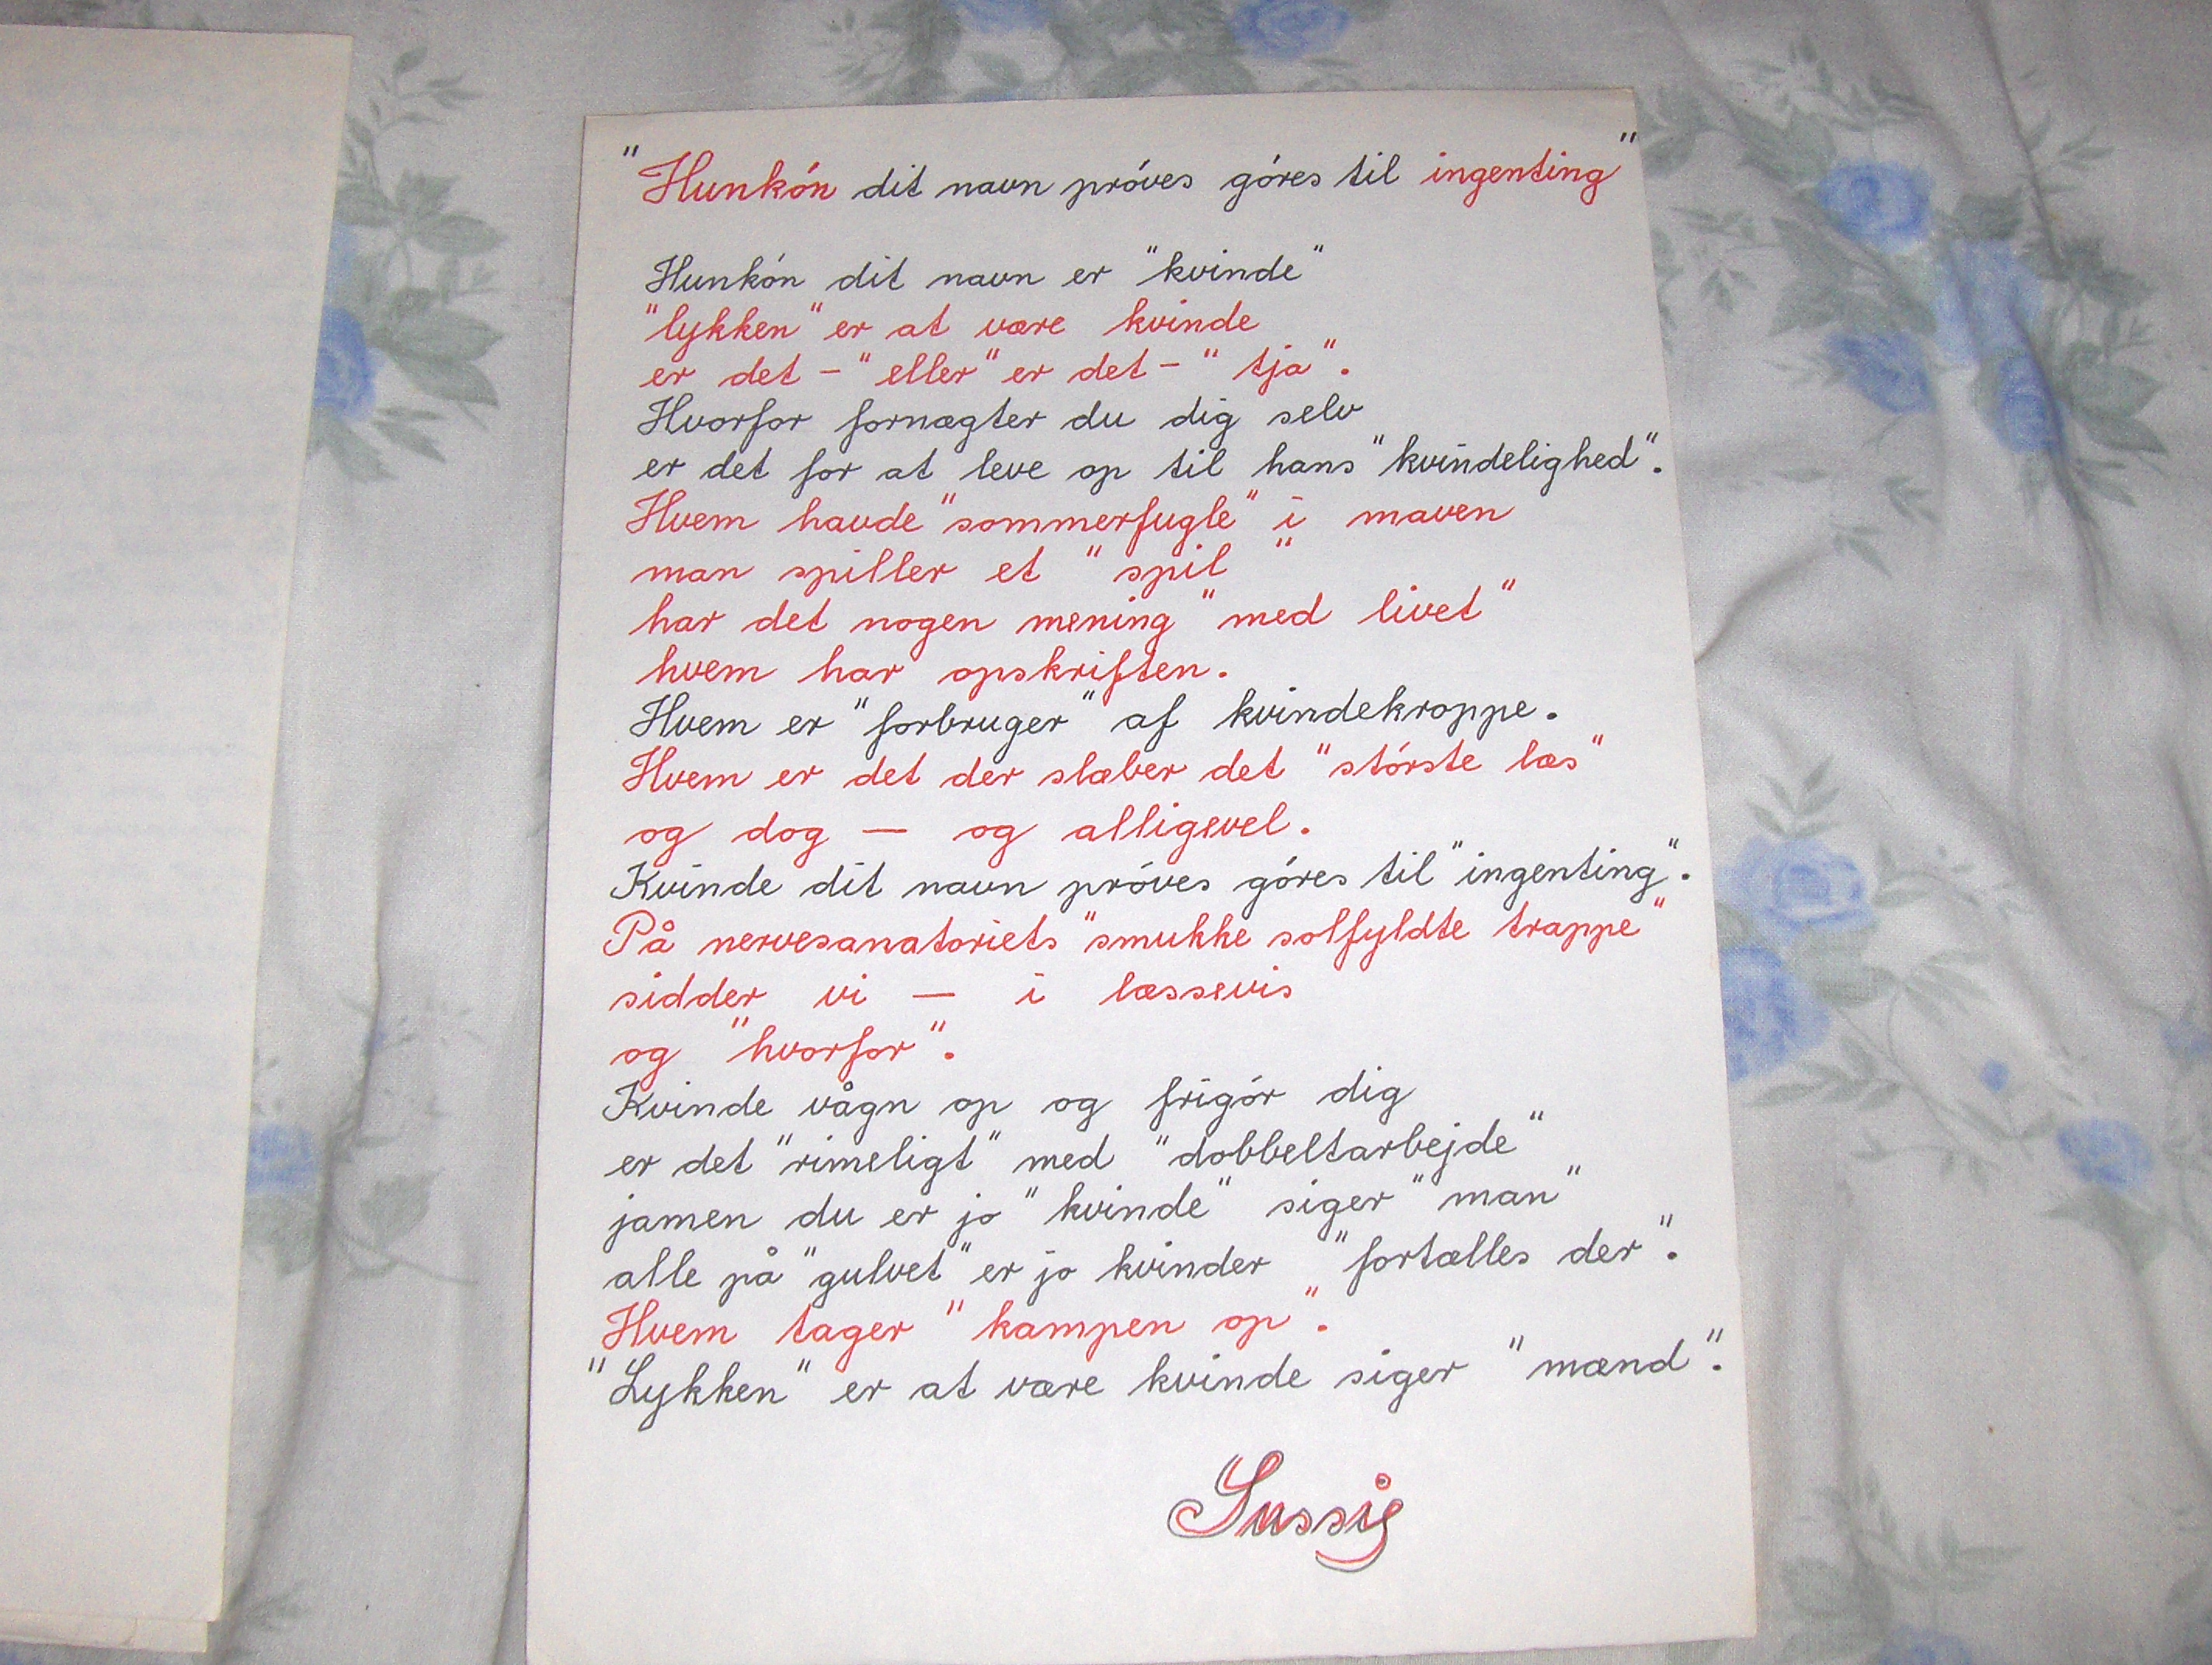 "Hunkón dit navn próves góres til ingenting"
Hunkón dit navn er "kvinde"
"lykken" er at være kvinde
er det - "eller" er det - "tja".
Hvorfor fornægter du dig selv
er det for at leve op til hans "kvindelighed".
Hvem havde "sommerfugle" i maven
man spiller et "spil"
har det nogen mening "med livet"
hvem har opskriften.
Hvem er "forbruger" af kvindekroppe.
Hvem er det der slæber det "stórste læs"
og dog — og alligevel.
Kvinde dit navn próves góres til "ingenting".
På nervesanatoriets "smukke solfyldte trappe"
sidder vi — i læssevis
og "hvorfor".
Kvinde vågn op og frigór dig
er det "rimeligt" med "dobbeltarbejde"
jamen du er jo "kvinde" siger "man"
alle på "gulvet" er jo kvinder "fortælles der".
Hvem tager "kampen op".
"Lykken" er at være kvinde siger "mænd".
Sussie